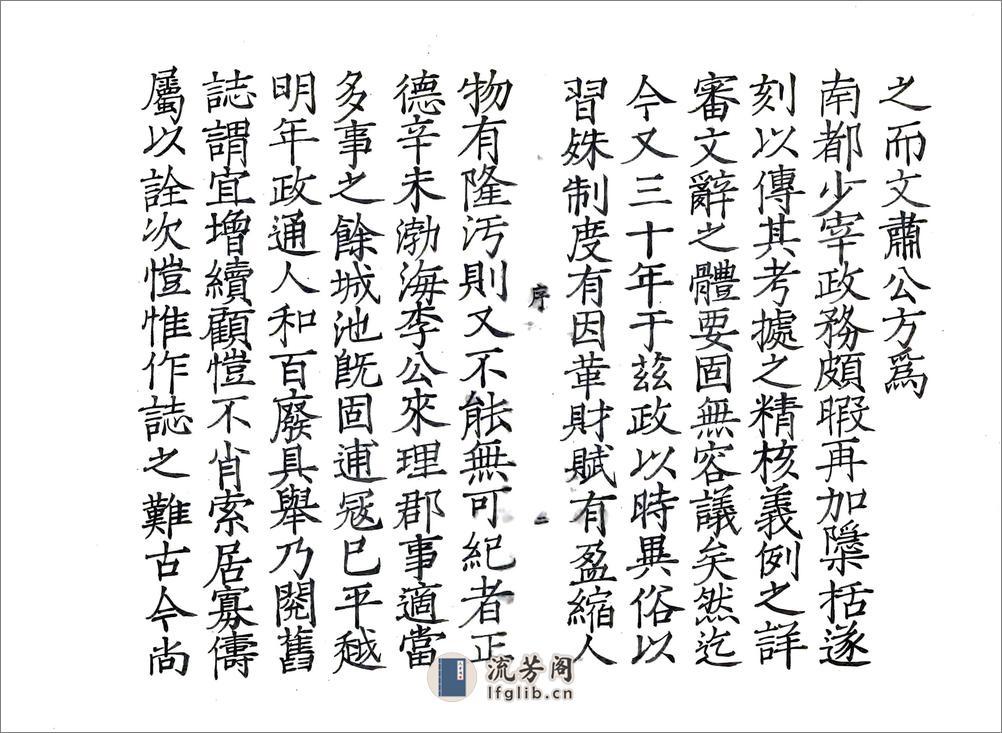 之而文肅公方爲
南都少宰政務頗暇再加檃括遂
刻以傳其考據之精核義例之詳
審文辭之體要固無容議矣然迄
今又三十年于玆政以時異俗以
習姝制度有因革財賦有盈縮人
序
二
物有隆汚則又不能無可紀者正
德辛未渤海李公來理郡事適當
多事之餘城池旣固逋冦巳平越
明年政通人和百廢具舉乃閱舊
誌謂宜增續顧愷不肖索居寡儔
屬以詮次愷惟作誌之難古今尚
流芳阁
lfglib.cn